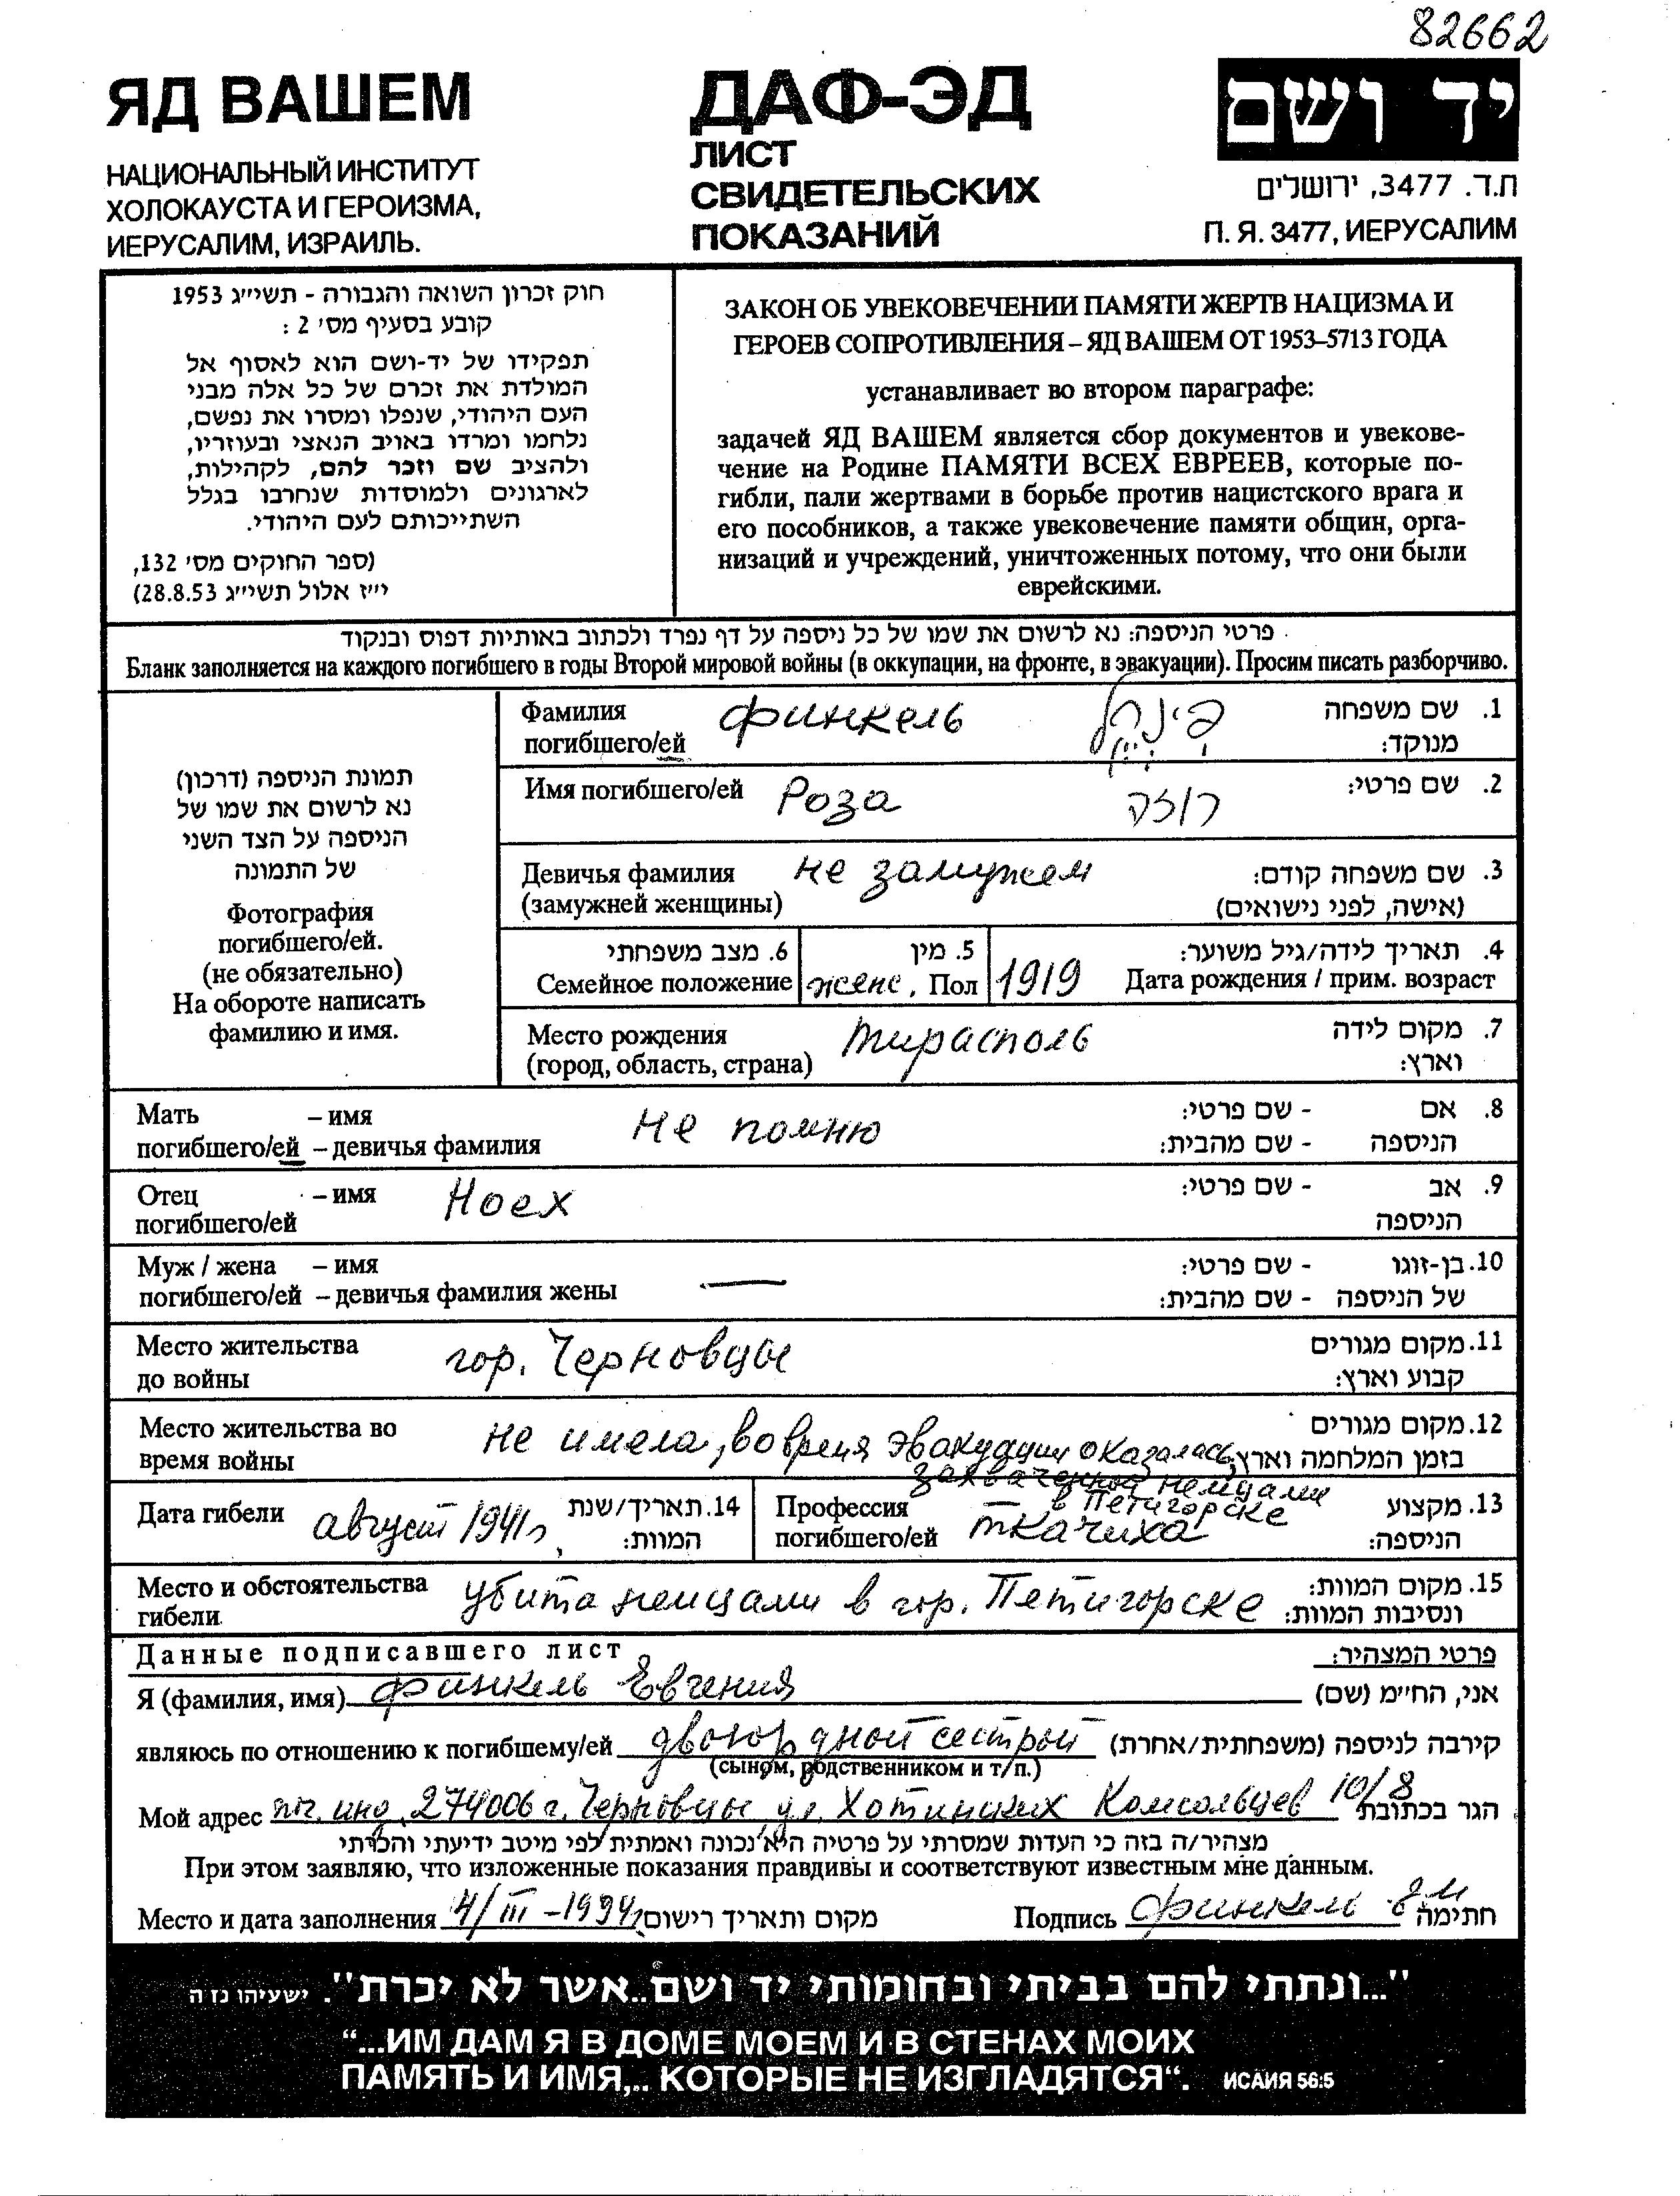 82662
ЯД ВАШЕМ
НАЦИОНАЛЬНЫЙ ИНСТИТУТ
ХОЛОКАУСТА И ГЕРОИЗМА,
ИЕРУСАЛИМ, ИЗРАИЛЬ.
ДАФ-ЭД
ЛИСТ
СВИДЕТЕЛЬСКИХ
ПОКАЗАНИЙ
יד ושם
ת.ד. 3477, ירושלים
П. Я. 3477, ИЕРУСАЛИМ
חוק זכרון השואה והגבורה - תשי״ג 1953
קובע בסעיף מס׳ 2 :
תפקידו של יד-ושם הוא לאסוף אל
המולדת את זכרם של כל אלה מבני
העם היהודי, שנפלו ומסרו את נפשם,
נלחמו ומרדו באויב הנאצי ובעוזריו,
ולהציב שם וזכר להם, לקהילות,
לארגונים ולמוסדות שנחרבו בגלל
השתייכותם לעם היהודי.
(ספר החוקים מס׳ 132,
י״ז אלול תשי״ג 28.8.53)
ЗАКОН ОБ УВЕКОВЕЧЕНИИ ПАМЯТИ ЖЕРТВ НАЦИЗМА И
ГЕРОЕВ СОПРОТИВЛЕНИЯ – ЯД ВАШЕМ ОТ 1953–5713 ГОДА
устанавливает во втором параграфе:
задачей ЯД ВАШЕМ является сбор документов и увекове-
чение на Родине ПАМЯТИ ВСЕХ ЕВРЕЕВ, которые по-
гибли, пали жертвами в борьбе против нацистского врага и
его пособников, а также увековечение памяти общин, орга-
низаций и учреждений, уничтоженных потому, что они были
еврейскими.
פרטי הניספה: נא לרשום את שמו של כל ניספה על דף נפרד ולכתוב באותיות דפוס ובנקוד
Бланк заполняется на каждого погибшего в годы Второй мировой войны (в оккупации, на фронте, в эвакуации). Просим писать разборчиво.
תמונת הניספה (דרכון)
נא לרשום את שמו של
הניספה על הצד השני
של התמונה
Фотография
погибшего/ей.
(не обязательно)
На обороте написать
фамилию и имя.
Фамилия финкель פינקל 1. שם משפחה
погибшего/ей מנוקד:
Имя погибшего/ей Роза רוזה 2. שם פרטי:
Девичья фамилия не замужем 3. שם משפחה קודם:
(замужней женщины) (אישה, לפני נישואים)
6. מצב משפחתי 5. מין 4. תאריך לידה/גיל משוער:
Семейное положение женс. Пол 1919 Дата рождения / прим. возраст
Место рождения Тирасполь 7. מקום לידה
(город, область, страна) וארץ:
Мать – имя не помню 8. אם - שם פרטי:
погибшего/ей – девичья фамилия הניספה - שם מהבית:
Отец – имя Ноех 9. אב - שם פרטי:
погибшего/ей הניספה
Муж / жена – имя 10. בן-זוגו - שם פרטי:
погибшего/ей – девичья фамилия жены — של הניספה - שם מהבית:
Место жительства гор. Черновцы 11. מקום מגורים
до войны קבוע וארץ:
Место жительства во не имела, во время эвакуации оказалась 12. מקום מגורים
время войны захваченной немцами בזמן המלחמה וארץ:
в Петигорске
Дата гибели август 1941г. 14. תאריך/שנת Профессия ткачиха 13. מקצוע
המוות: погибшего/ей הניספה:
Место и обстоятельства убита немцами в гор. Петигорске 15. מקום המוות:
гибели ונסיבות המוות:
Данные подписавшего лист פרטי המצהיר:
Я (фамилия, имя) финкель Евгения אני, הח״מ (שם)
являюсь по отношению к погибшему/ей двоюродной сестрой קירבה לניספה (משפחתית/אחרת)
(сыном, родственником и т/п.)
Мой адрес поч. инд. 274006 г. Черновцы ул. Хотинских Комсольцев 10/8 הגר בכתובת
מצהיר/ה בזה כי העדות שמסרתי על פרטיה היא נכונה ואמתית לפי מיטב ידיעתי והכרתי
При этом заявляю, что изложенные показания правдивы и соответствуют известным мне данным.
Место и дата заполнения 4/III -1994г מקום ותאריך רישום Подпись финкель חתימה
"...ונתתי להם בביתי ובחומותי יד ושם..אשר לא יכרת". ישעיהו נז ה
“...ИМ ДАМ Я В ДОМЕ МОЕМ И В СТЕНАХ МОИХ
ПАМЯТЬ И ИМЯ,.. КОТОРЫЕ НЕ ИЗГЛАДЯТСЯ“. ИСАИЯ 56:5